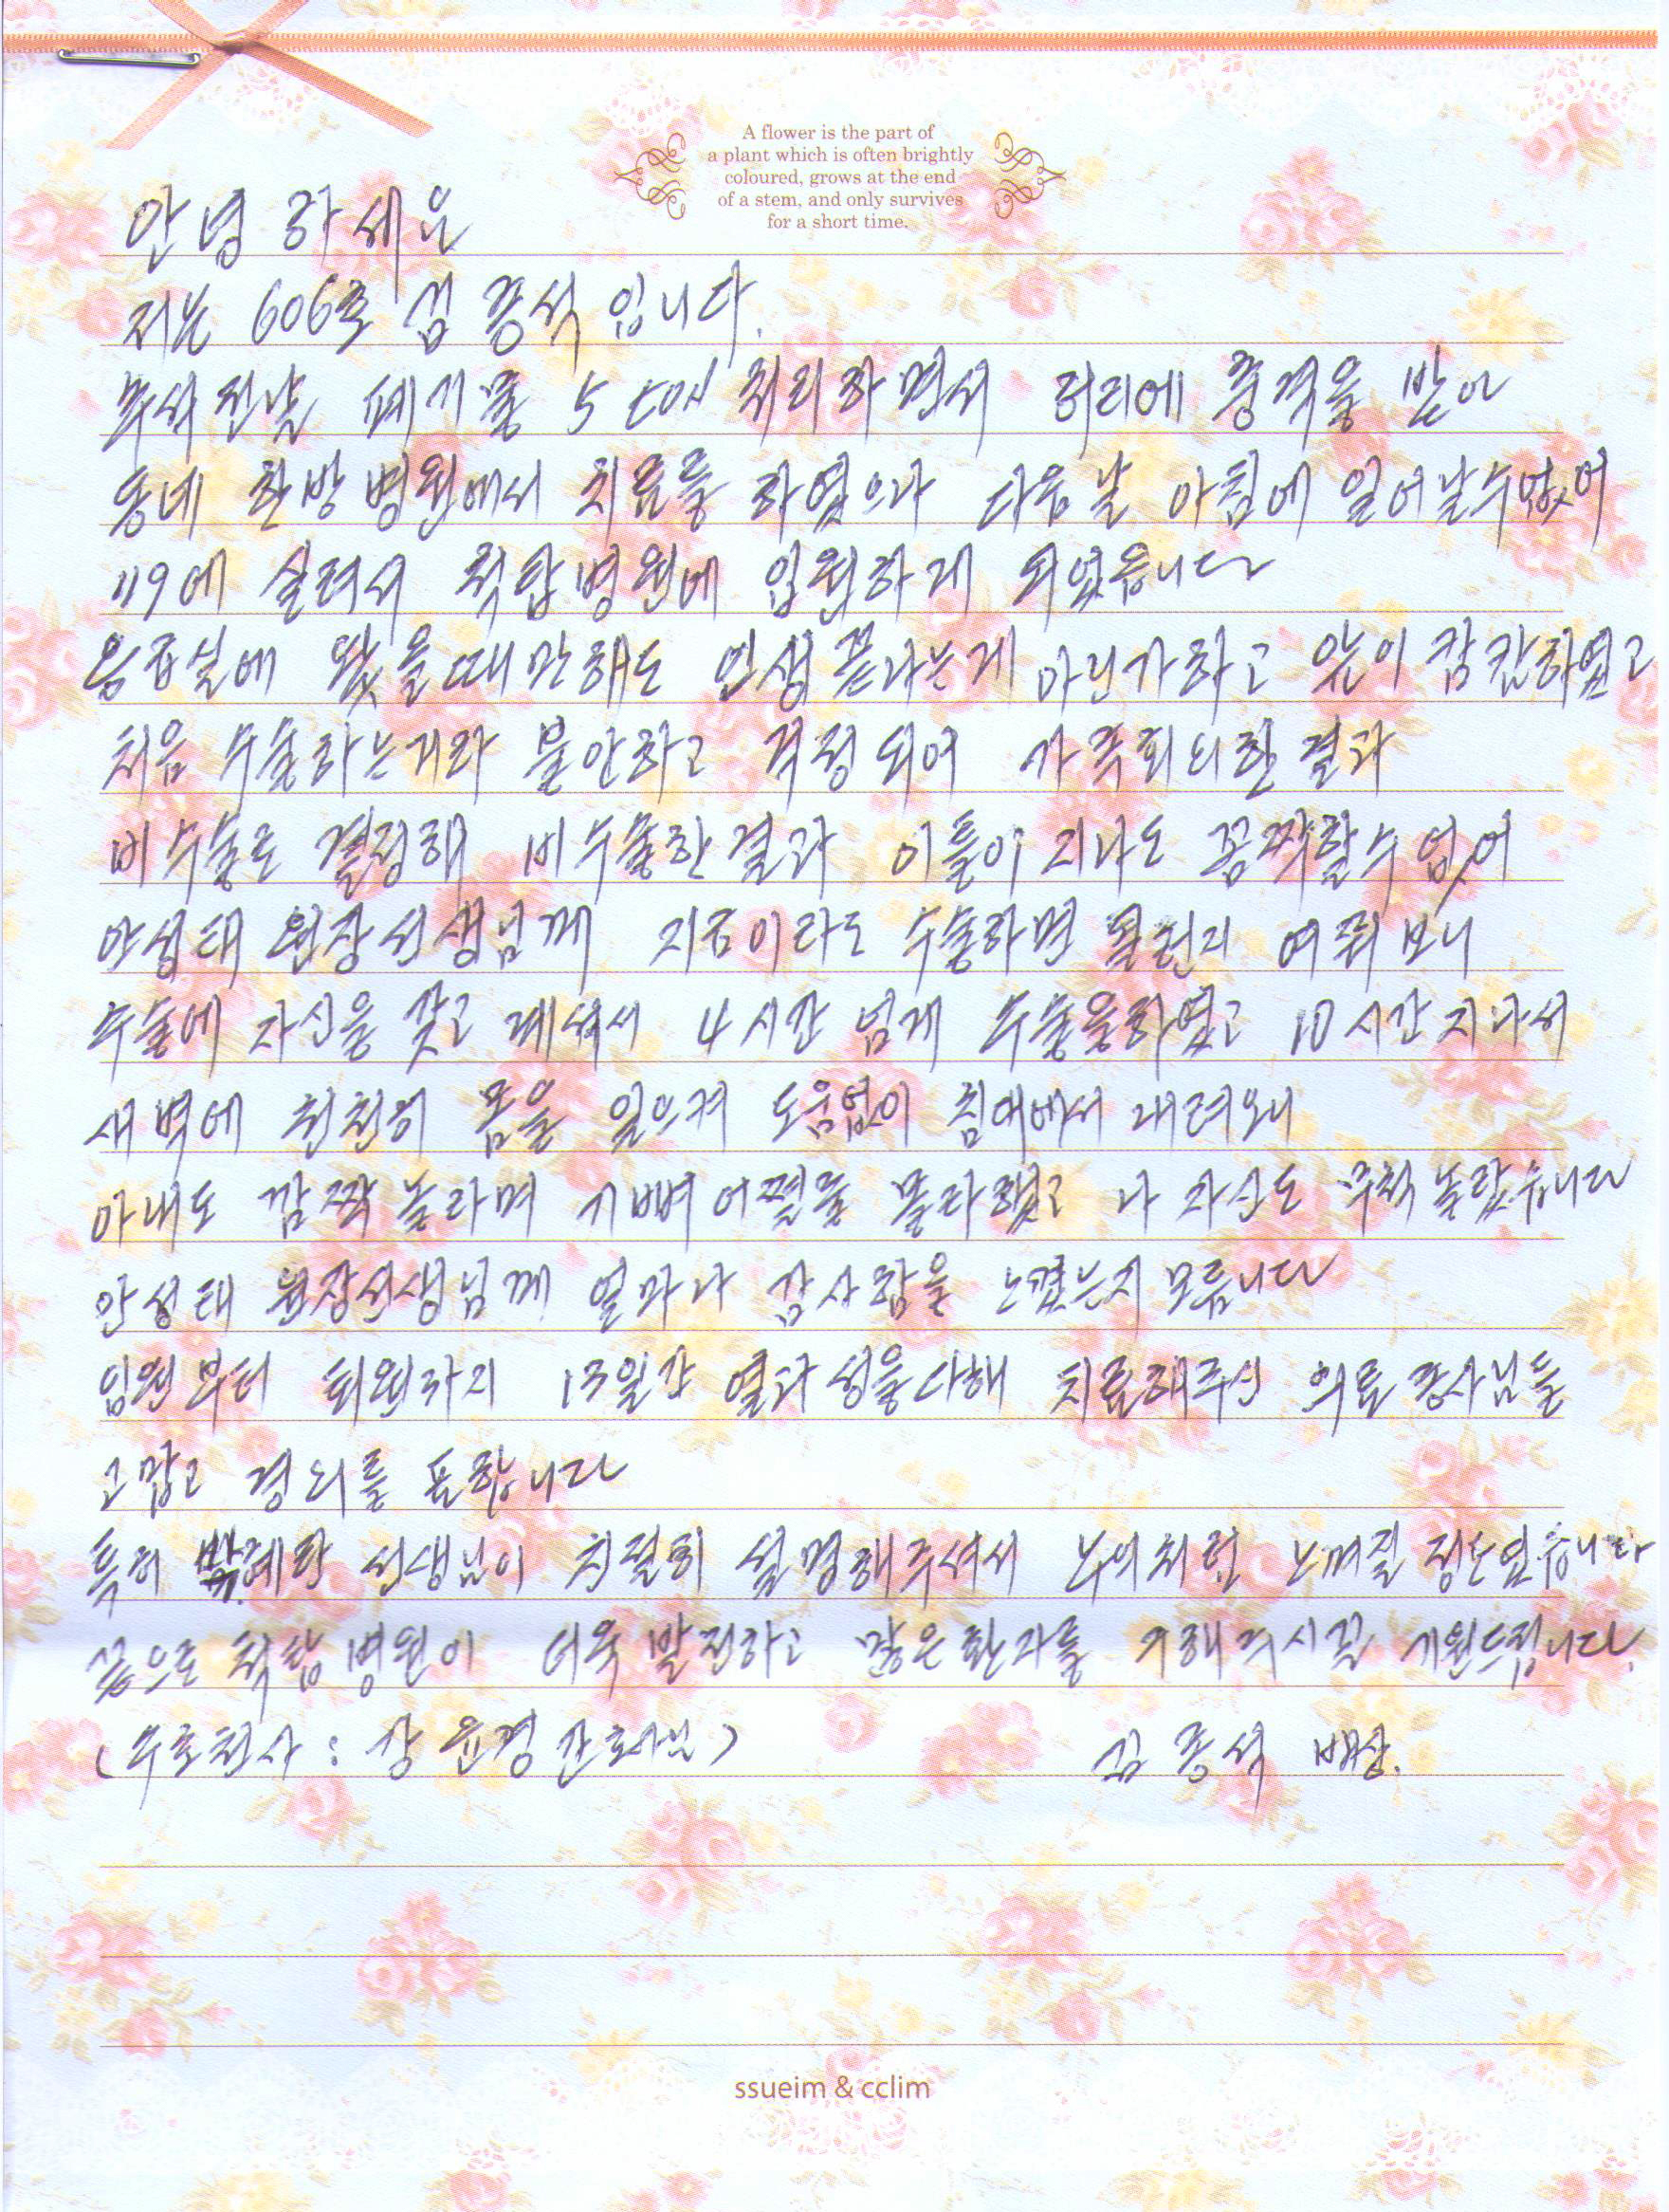 A flower is the part of
a plant which is often brightly
coloured, grows at the end
of a stem, and only survives
for a short time.
안녕하세요
저는 606호 김종석입니다.
추석전날 폐기물 5 ton 처리하면서 허리에 충격을 받아
동네 한방병원에서 치료를 하였으나 다음날 아침에 일어날수없어
119에 실려서 척탑병원에 입원하게 되었읍니다
응급실에 왔을때만해도 인생끝나는게 아닌가하고 앞이 캄캄하였고
처음 수술하는거라 불안하고 걱정되어 가족회의한결과
비수술로 결정해 비수술한결과 이틀이 지나도 꼼짝할수없어
안성태 원장선생님께 지금이라도 수술하면 여쭤보니
수술에 자신을 갖고 계셔서 4시간 넘게 수술을하였고 10시간지나서
새벽에 천천히 몸을 일으켜 도움없이 침대에서 내려오니
아내도 깜짝놀라며 기뻐어쩔줄 몰라했고 나 자신도 무척놀랐습니다
안성태 원장선생님께 얼마나 감사함을 느꼈는지모릅니다
입원부터 퇴원까지 13일간 열과성을다해 치료해주신 의료종사님들
고맙고 경의를 표합니다
특히 선생님이 친절히 설명해주셔서 누이처럼 느껴질정도였습니다
끝으로 척탑병원이 더욱발전하고 많은환자를 기원드립니다.
(수호천사 : 강윤경간호사님) 김종석 배상.
ssueim & cclim